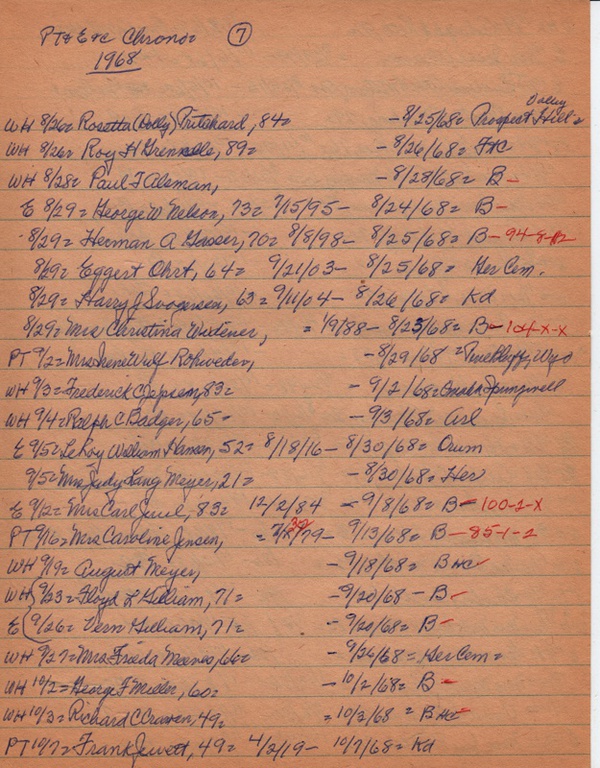 PT & Ete Chronos ⑦
1968
Valley
WH 8/26= Rosetta (Dolly) Pritchard, 84= - 8/25/68= Prospect Hill=
WH 8/26= Roy H Grennelle, 89= - 8/26/68=
WH 8/28= Paul F Alsman, - 8/28/68= B-
E 8/29= George W Nelson, 73= 7/15/95- 8/24/68= B-
8/29= Herman A Gosser, 70= 8/8/98- 8/25/68= B- 94-8-
8/29= Eggert Ohrt, 64= 9/21/03- 8/25/68= Her Cem.
8/29= Harry J Svogersen, 63= 9/11/04- 8/26/68= Kd
8/29= Mrs Christina Widener, = 1/9/88- 8/25/68= B- 104-X-X
PT 9/2= Mrs Irene Wulf Rohweder, - 8/29/68= Pine Bluff, Wyo
WH 9/3= Frederick C Jeppsen, 83= - 9/2/68= Omaha Springwell
WH 9/4= Ralph C Badger, 65- - 9/3/68= Arl
E 9/5= LeRoy William Hansen, 52= 8/18/16- 8/30/68= Orum
9/5= Mrs Judy Lang Meyer, 21= - 8/30/68= Her
E 9/12= Mrs Carl Juul, 83= 12/2/84 - 9/8/68= B- 100-1-X
PT 9/16= Mrs Caroline Jensen, = 79- 9/13/68= B- 85-1-2
WH 9/19= August Meyer, - 9/18/68= B HC
WH 9/23= Floyd L Gilliam, 71= - 9/20/68- B-
E 9/26= Vern Gilliam, 71= - 9/20/68= B-
WH 9/27= Mrs Frieda 66= - 9/26/68= Her Cem=
WH 10/2= George F Miller, 60= - 10/2/68= B-
WH 10/3= Richard C Craven, 49= = 10/3/68= B HC
PT 10/7= Frank Jewett, 49= 4/2/19- 10/7/68= Kd